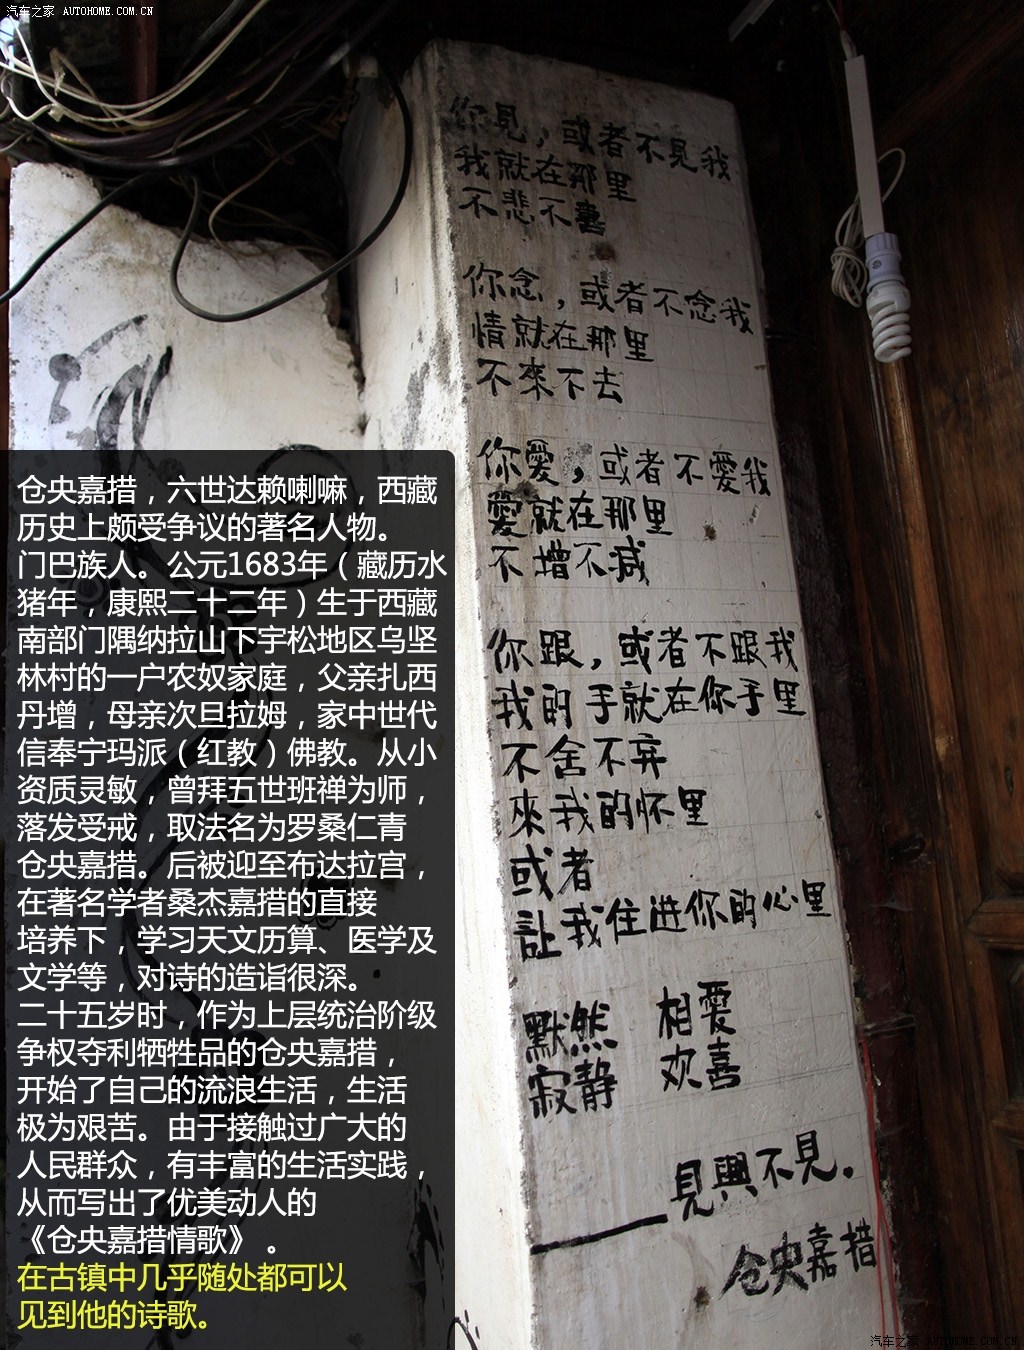 汽车之家 AUTOHOME.COM.CN
你見，或者不見我
我就在那里
不悲不喜
你念，或者不念我
情就在那里
不來不去
你愛，或者不愛我
愛就在那里
不增不减
你跟，或者不跟我
我的手就在你手里
不舍不弃
來我的怀里
或者
讓我住进你的心里
默然 相愛
寂静 欢喜
——見與不見。
仓央嘉措
仓央嘉措，六世达赖喇嘛，西藏
历史上颇受争议的著名人物。
门巴族人。公元1683年（藏历水
猪年，康熙二十二年）生于西藏
南部门隅纳拉山下宇松地区乌坚
林村的一户农奴家庭，父亲扎西
丹增，母亲次旦拉姆，家中世代
信奉宁玛派（红教）佛教。从小
资质灵敏，曾拜五世班禅为师，
落发受戒，取法名为罗桑仁青
仓央嘉措。后被迎至布达拉宫，
在著名学者桑杰嘉措的直接
培养下，学习天文历算、医学及
文学等，对诗的造诣很深。
二十五岁时，作为上层统治阶级
争权夺利牺牲品的仓央嘉措，
开始了自己的流浪生活，生活
极为艰苦。由于接触过广大的
人民群众，有丰富的生活实践，
从而写出了优美动人的
《仓央嘉措情歌》。
在古镇中几乎随处都可以
见到他的诗歌。
汽车之家 AUTOHOME.COM.CN